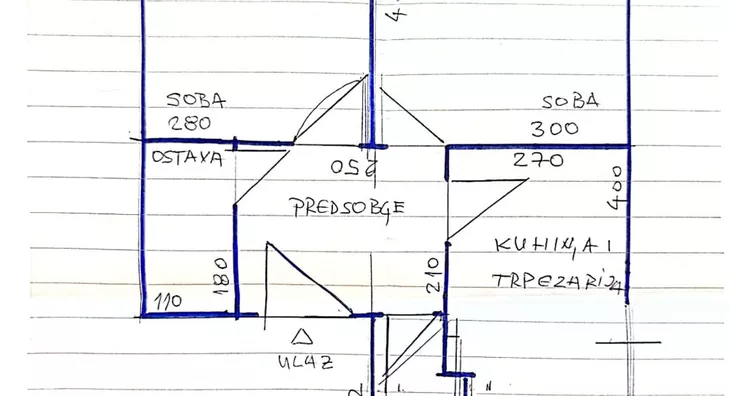 4
SOBA
280
SOBA
300
OSTAVA
250
270
400
PREDSOBJE
KUHINJA I
TRPEZARIJA
180
210
110
ULAZ
2